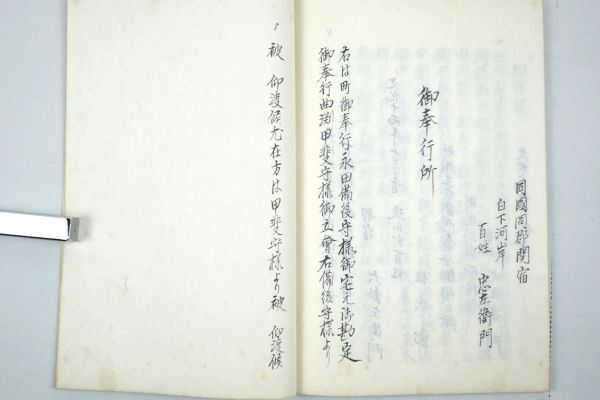 同國同郡関宿
向下河岸
百姓 忠左衛門
御奉行所
右は町御奉行永田備後守様御宅え御勘定
御奉行曲渕甲斐守様御立會右備後守様より
被 仰渡候尤在方は甲斐守様より被 仰渡候